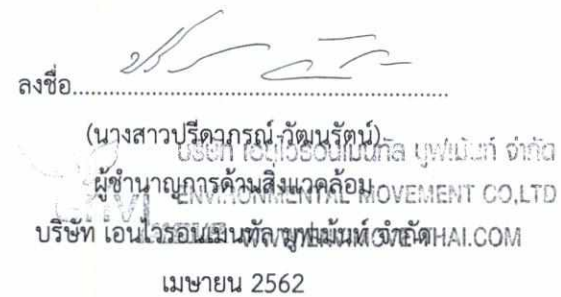 ลงชื่อ
(นางสาวปรีดาภรณ์ วัฒนรัตน์)
บริษัท เอนไวรอนเมนทัล มูฟเม้นท์ จำกัด
ผู้ชำนาญการด้านสิ่งแวดล้อม
ENVIRONMENTAL MOVEMENT CO.,LTD
บริษัท เอนไวรอนเม้นทัล มูฟเม้นท์ จำกัด
เมษายน 2562